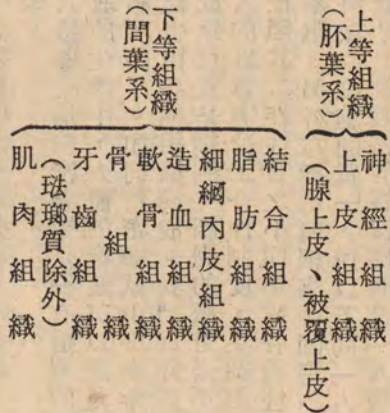 上等組織
（胚葉系）
神經組織
上皮組織
（腺上皮、被覆上皮）
下等組織
（間葉系）
結合組織
脂肪組織
細網內皮組織
造血組織
軟骨組織
骨組織
牙齒組織
（琺瑯質除外）
肌肉組織